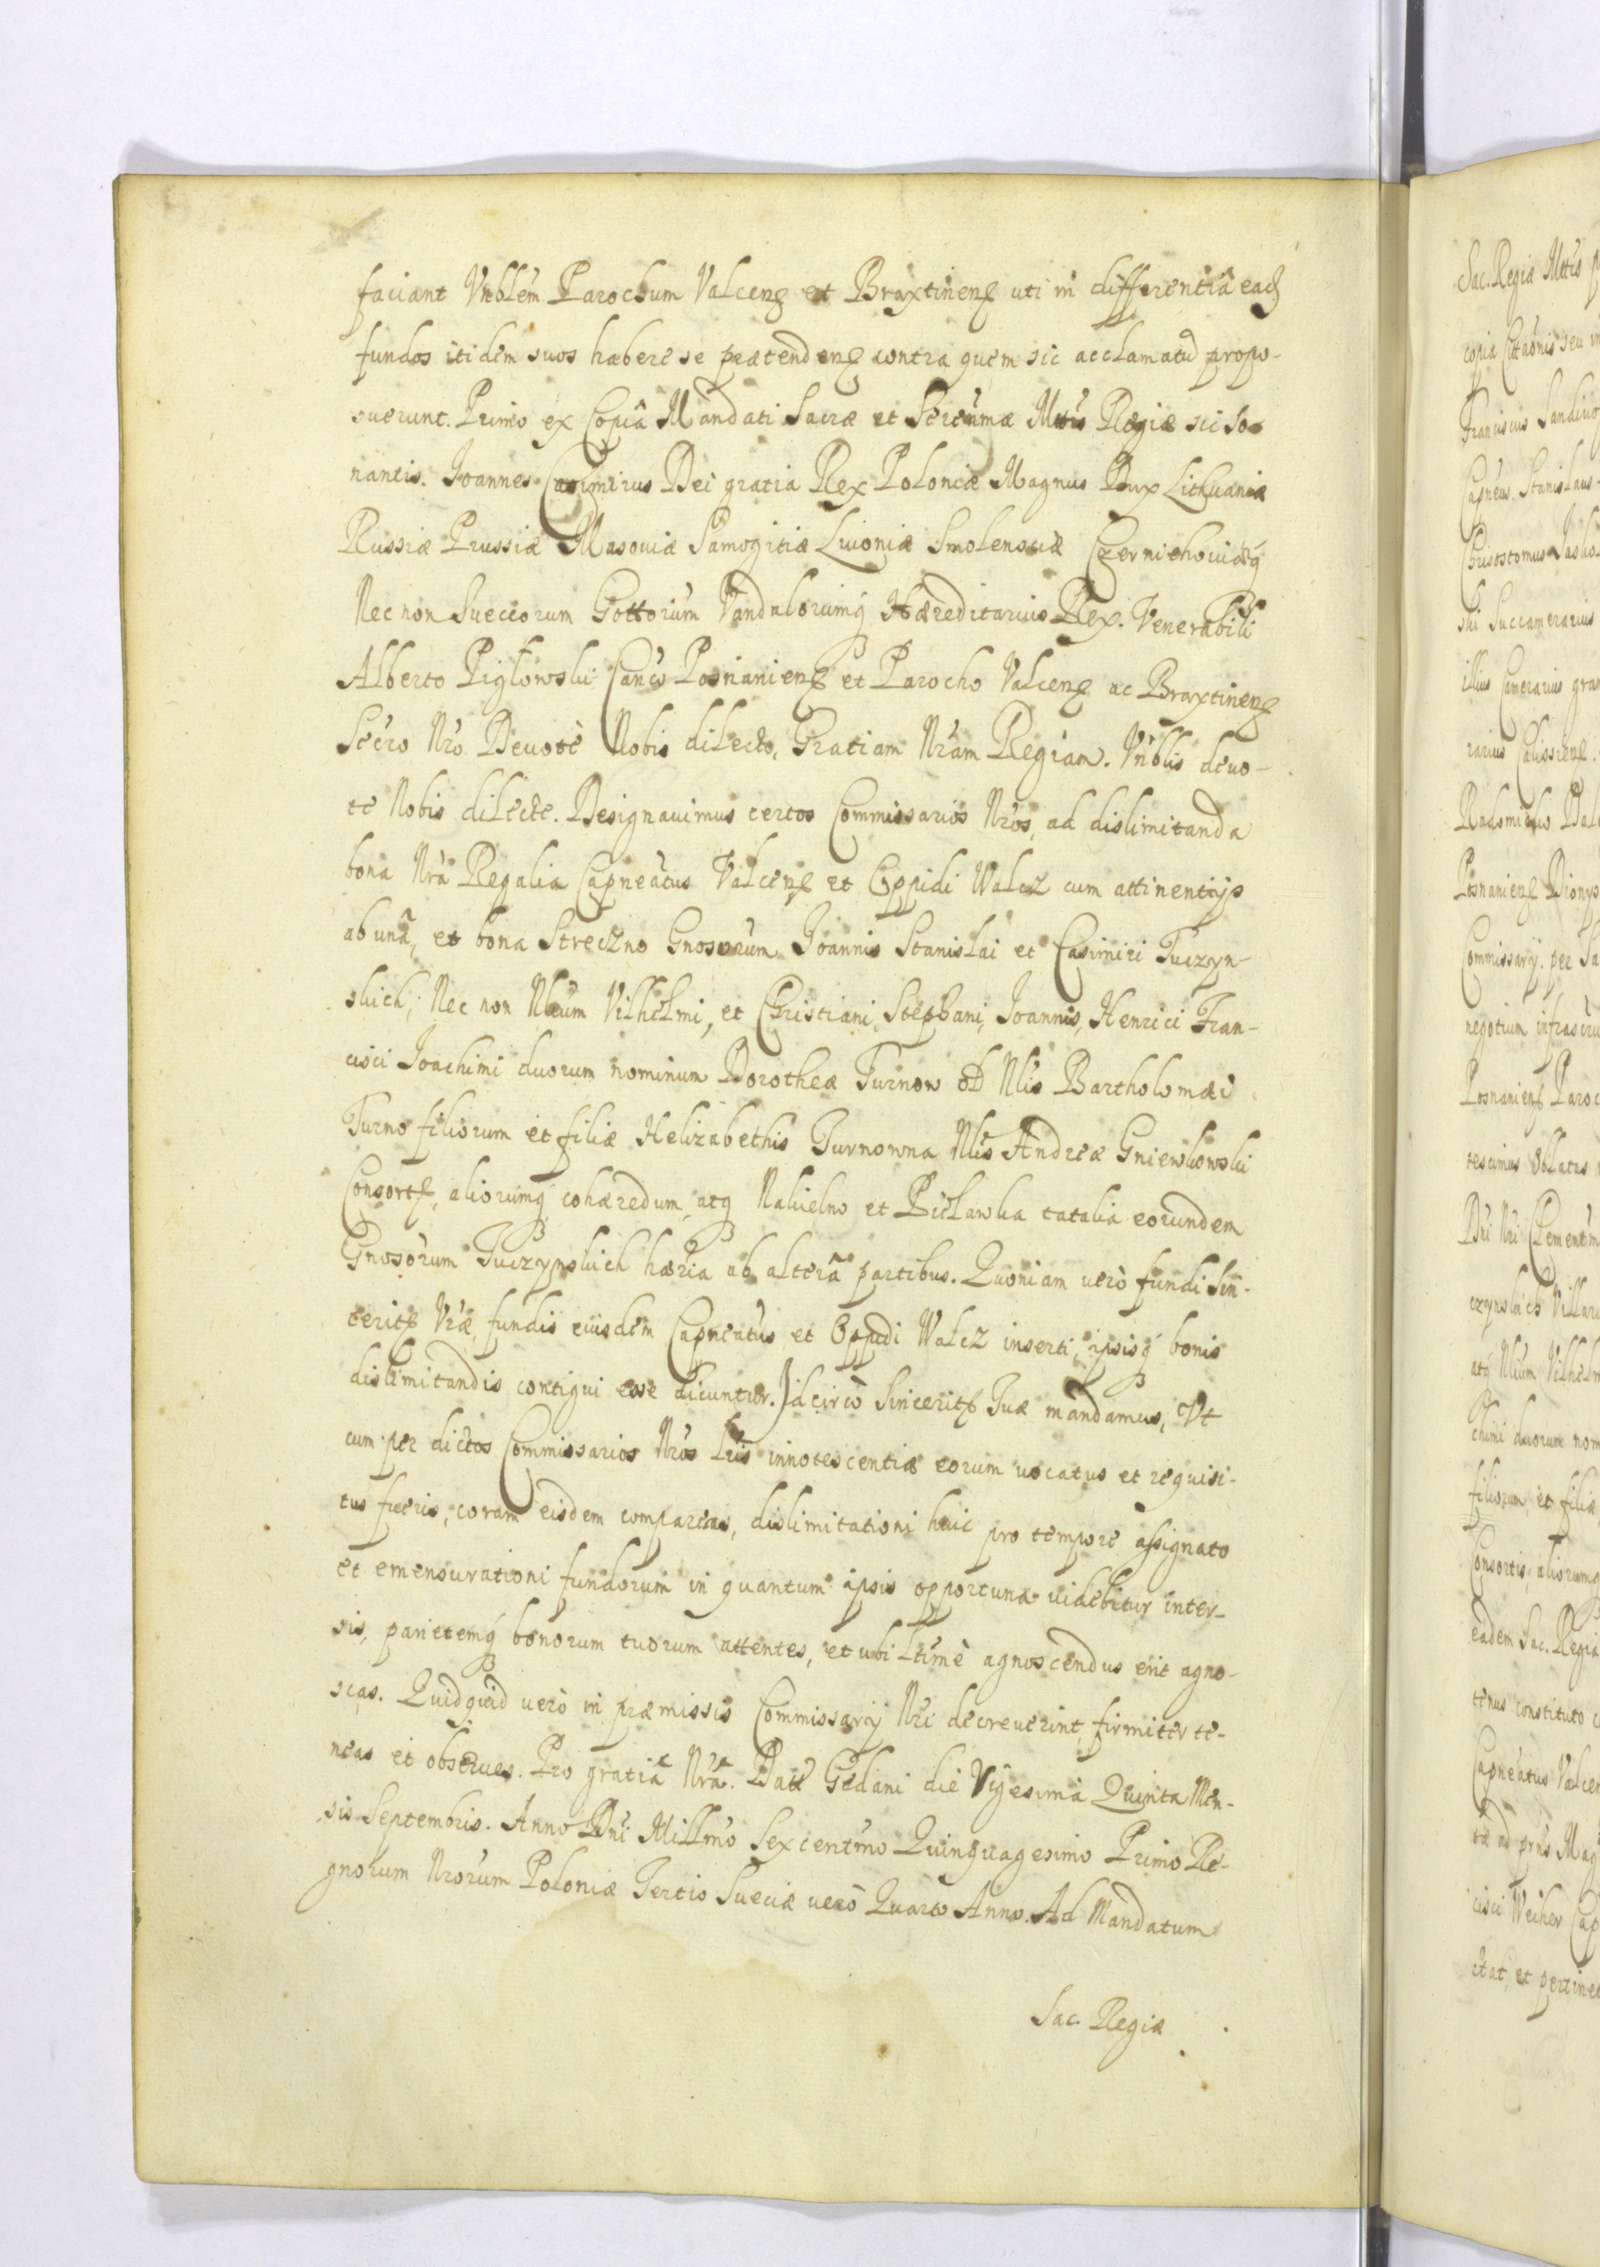 faciant Vnblem Parochum Valcens et Braxtinens uti in differentiâ eads
fundos itidem suos habere se prætendens contra quem sic acclamatũ propo-
suerunt. Primo ex Copiâ Mandati Sacræ et Serenmæ Mttis Regiæ sic so-
nantis. Joannes Casimirus Dei gratia Rex Poloniæ Magnus Dux Lithuaniæ
Russiæ Prussiæ Masouiæ Samogitiæ Liuoniæ Smolensciæ Czernichouiæq́
Nec non Suecorum Gottorum Vandalorumq́ Hæreditarius Rex. Venerabili
Alberto Pigłowski Canco Posnaniens et Parocho Valcens ac Braxtinens
Secro Nro Deuotè Nobis dilecto, Gratiam Nram Regiam. Vnblis deuo-
te Nobis dilecte. Designauimus certos Commissarios Nros, ad dislimitanda
bona Nra Regalia Capneatus Valcens et Oppidi Walcz cum attinentijs
ab unâ, et bona Streczno Gnosorum Joannis Stanislai et Casimiri Tuczyn-
skich; Nec non Nlium Vilhelmi, et Christiani, Stephani, Joannis, Henrici Fran-
cisci Joachimi duorum nominum Dorotheæ Turnow ol Nlis Bartholomæi
Turno filiorum et filiæ Helizabethis Turnowna Nlis Andreæ Gniewkowski
Consorts, aliorumq́ cohæredum, atq Nakielno et Bicławka tatalia eorundem
Gnosorum Tuczynskich hæria ab alterâ partibus. Quoniam uerò fundi Sin-
ceritts Vræ, fundis eiusdem Capneatus et Oppidi Walcz inserti, ipsisq́ bonis
dislimitandis contigui esse dicuntur. Idcirco Sinceritts Tuæ mandamus, Vt
cum per dictos Commissarios Nros Lris innotescentiæ eorum uocatus et requisi-
tus fueris, coram eisdem compareas, dislimitationi huic pro tempore assignato
et emensurationi fundorum in quantum ipsis opportuna uidebitur inter-
sis, parietemq́ bonorum tuorum attentes, et ubi Ltimè agnoscendus erit agno-
scas. Quidquid uerò in præmissis Commissarij Nri decreuerint, firmiter te-
neas et obserues. Pro gratiâ Nrâ. Datt Gedani die Vigesimâ Quinta Men-
sis Septembris. Anno Dni Millmo Sexcentmo Quinquagesimo Primo Re-
gnorum Nrorum Poloniæ Tertio Sueciæ uerò Quarto Anno. Ad Mandatum
Sac. Regiæ
Sac. Regiæ Mttis
Franciscus
Capneus. Stanislaus
Succamerarius
illius Camerarius
Commissarij. per
negotium
Posnaniens
Vilhelm
duorum nom
filiorum, et filiæ
Consortis, aliorumq
eadem Sac. Regia
tenus constituto
Capneatus Valcen
Weiher Cap